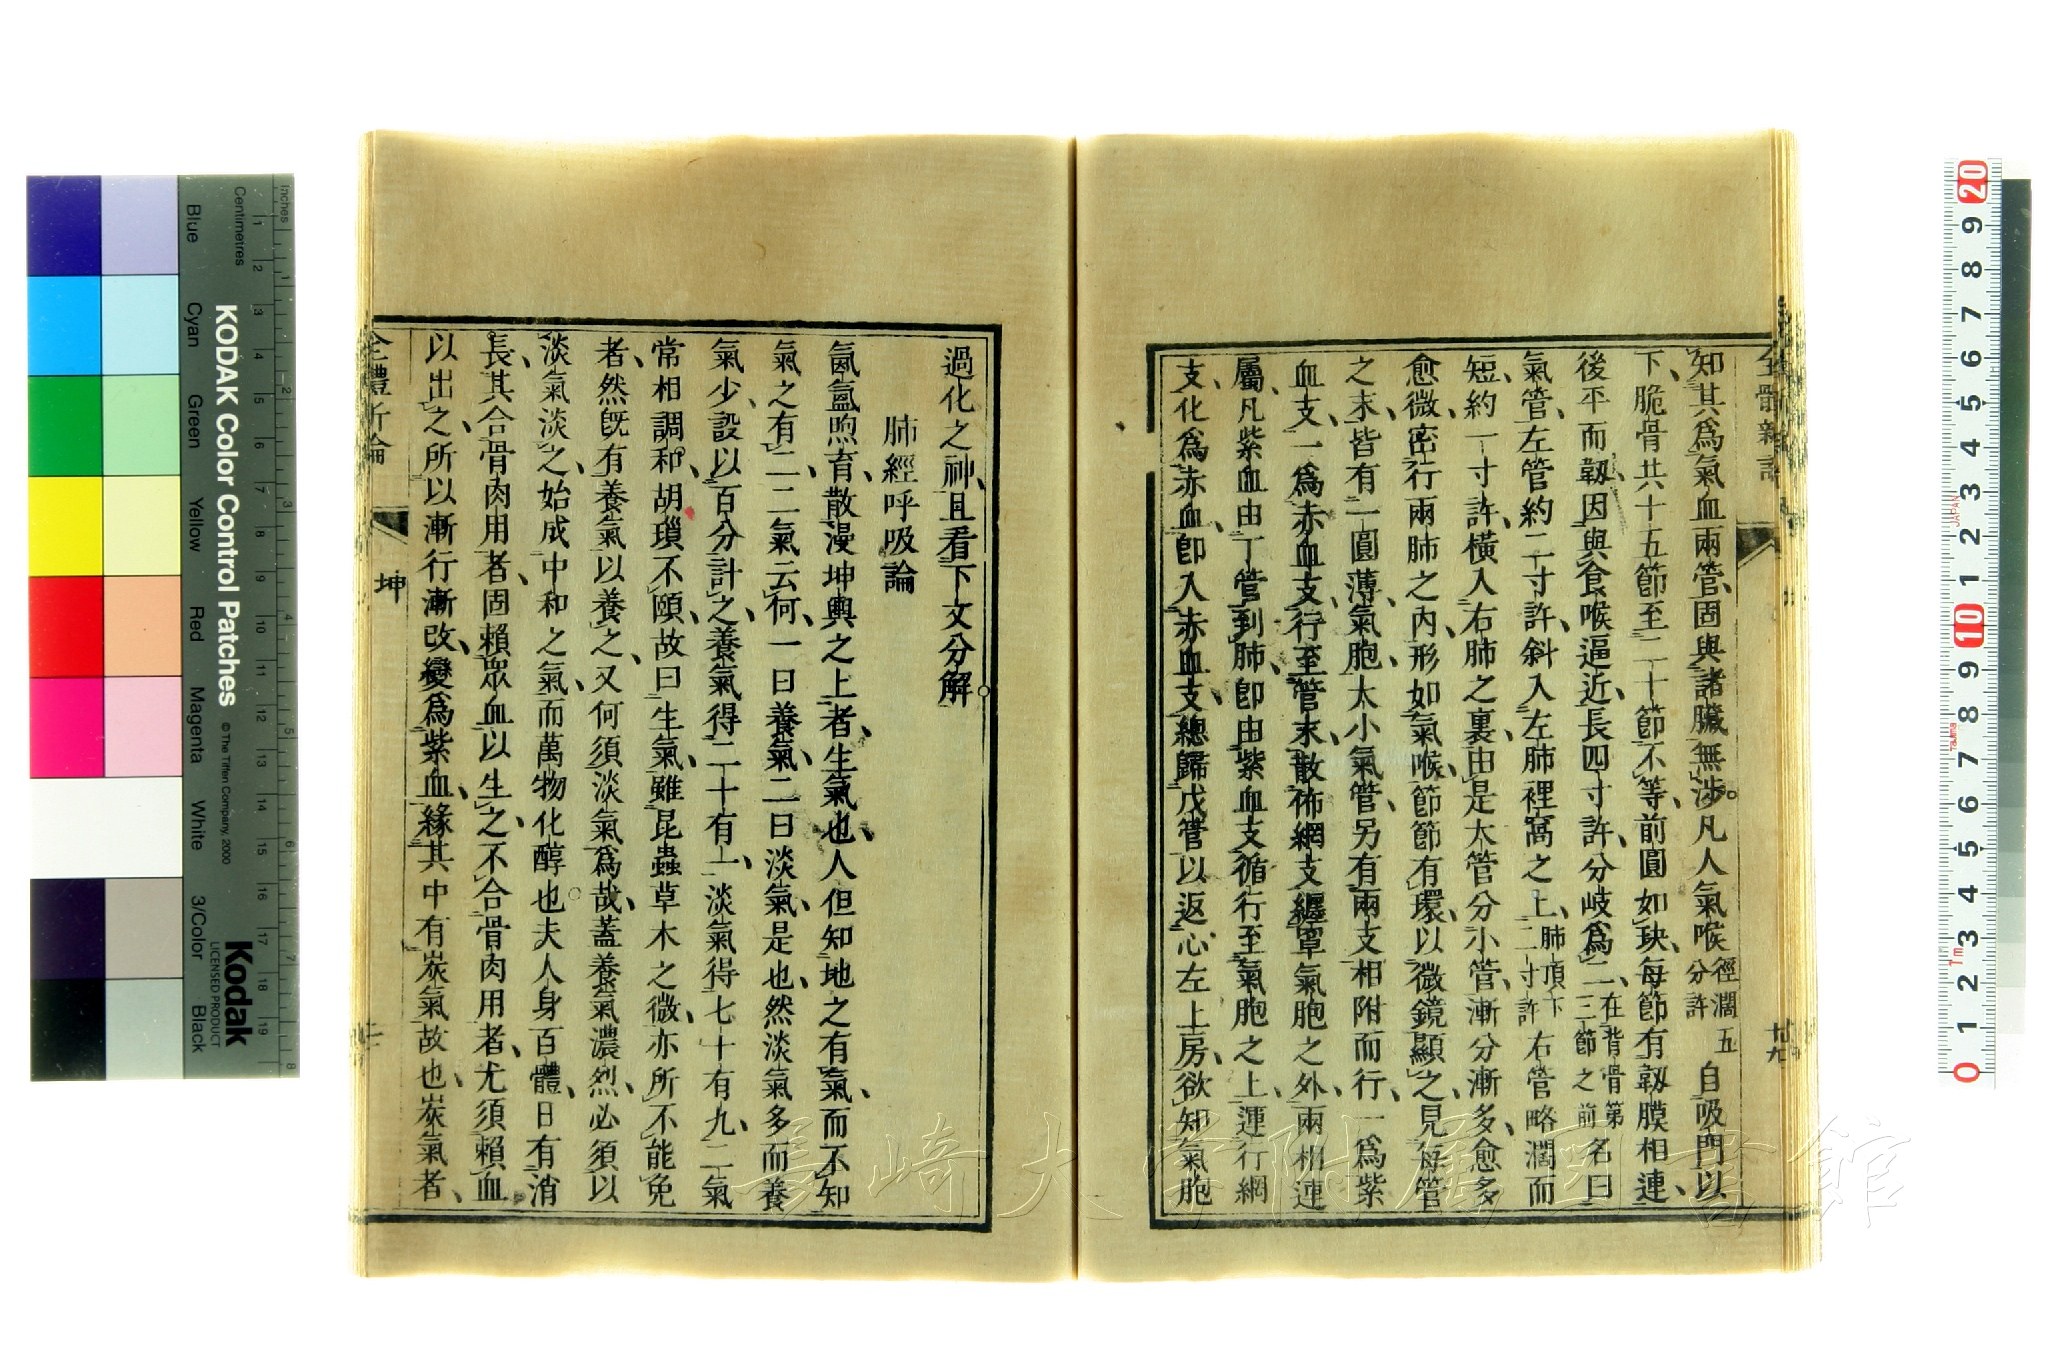 全體新論
坤
廿九
知其爲氣血兩管固與諸臟無涉凡人氣喉徑濶五分許自吸門以
下脆骨共十五節至二十節不等前圓如玦每節有韌膜相連
後平而韌因與食喉逼近長四寸許分岐爲二在背骨第三節之前名曰
氣管左管約二寸許斜入左肺裡窩之上肺頂下二寸許右管略濶而
短約一寸許橫入右肺之裏由是大管分小管漸分漸多愈多
愈微密行兩肺之內形如氣喉節節有環以微鏡顯之見每管
之末皆有一圓薄氣胞大小氣管另有兩支相附而行一爲紫
血支一爲赤血支行至管末散佈網支纏罩氣胞之外兩相連
屬凡紫血由丁管到肺卽由紫血支循行至氣胞之上運行網
支化爲赤血卽入赤血支總歸戊管以返心左上房欲知氣胞
過化之神且看下文分解
肺經呼吸論
氤氳煦育散漫坤輿之上者生氣也人但知地之有氣而不知
氣之有二二氣云何一曰養氣二曰淡氣是也然淡氣多而養
氣少設以百分計之養氣得二十有一淡氣得七十有九二氣
常相調和胡瑣不頤故曰生氣雖昆蟲草木之微亦所不能免
者然旣有養氣以養之又何須淡氣爲哉蓋養氣濃烈必須以
淡氣淡之始成中和之氣而萬物化醇也夫人身百體日有消
長其合骨肉用者固賴眾血以生之不合骨肉用者尤須賴血
以出之所以漸行漸改變爲紫血緣其中有炭氣故也炭氣者
全體新論
坤
KODAK Color Control Patches
© The Tiffen Company, 2000
Kodak
LICENSED PRODUCT
Inches
Centimetres
Blue
Cyan
Green
Yellow
Red
Magenta
White
3/Color
Black
1 2 3 4 5 6 7 8 9 10 11 12 13 14 15 16 17 18 19
1 2 3 4 5 6 7 8
20 9 8 7 6 5 4 3 2 1 10 9 8 7 6 5 4 3 2 1 0
JAPAN
1m
長崎大学附属図書館